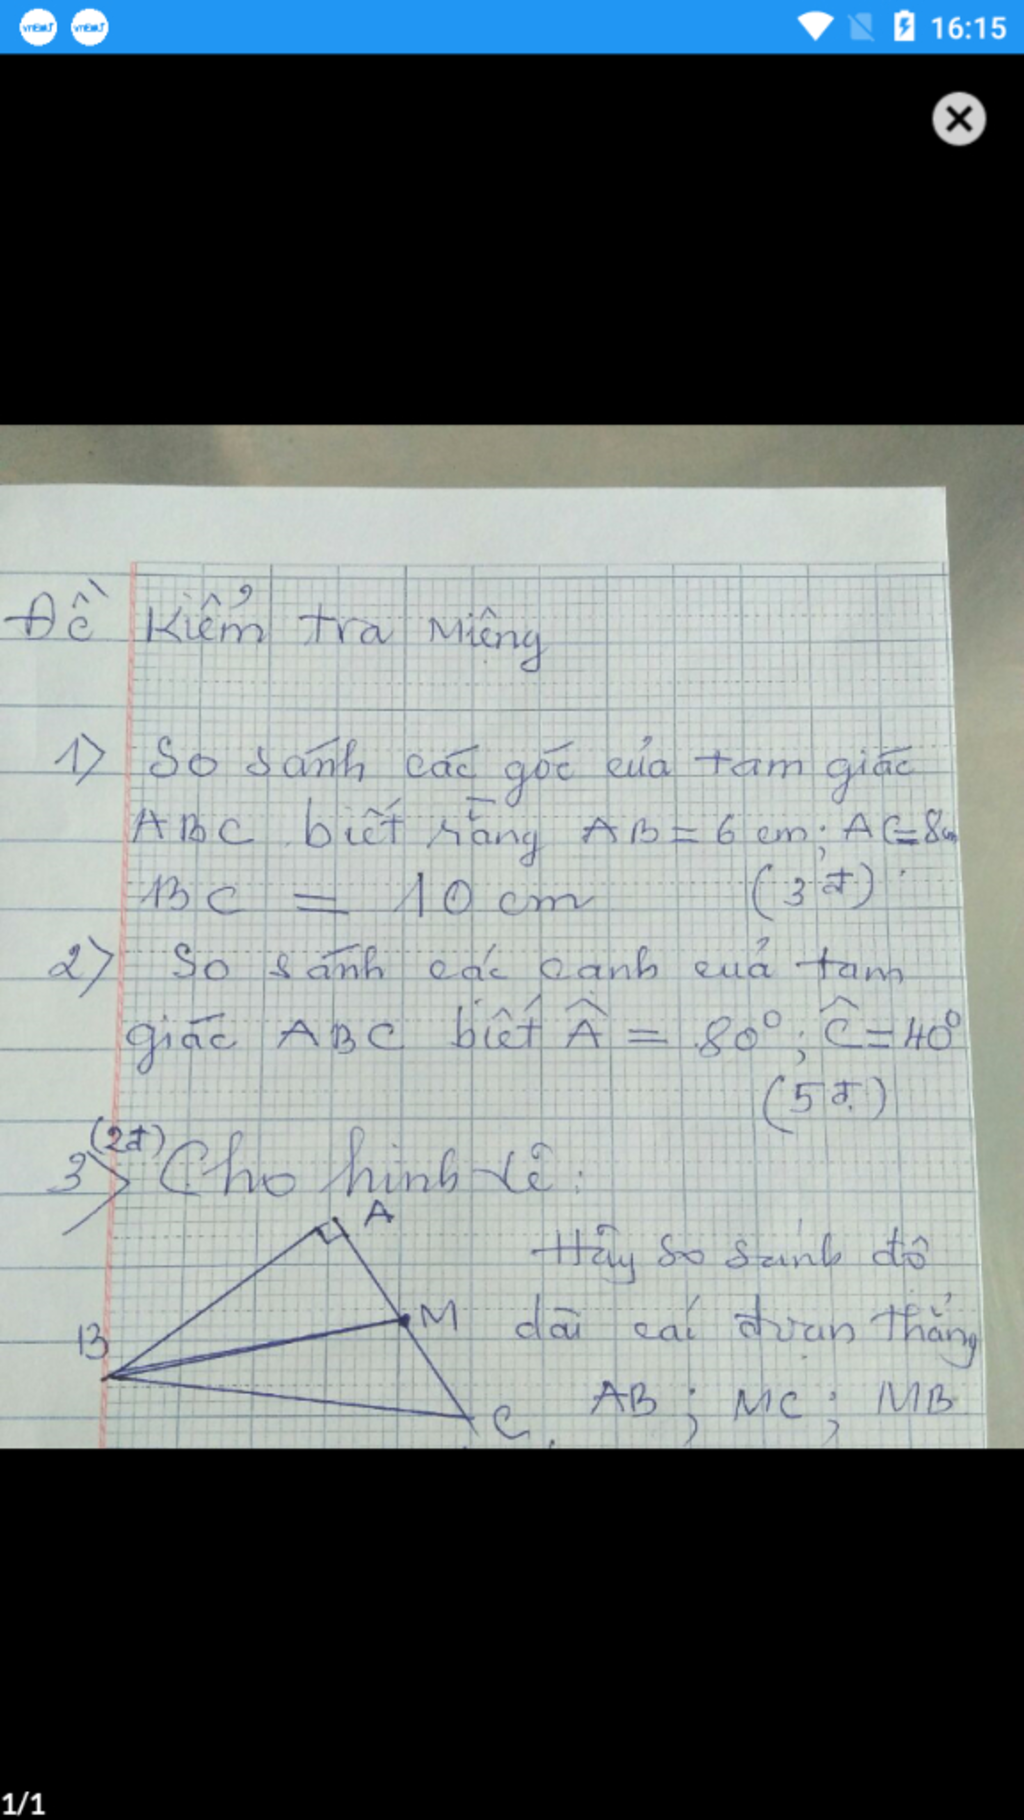 16:15
Đề Kiểm tra Miêng
1) So sánh các góc của tam giác
ABC biết rằng AB = 6 cm; AC = 8cm
BC = 10 cm (3 đ)
2) So sánh các canh cuả tam
giác ABC biết Â = 80°; Ĉ = 40°
(5 đ)
(2đ)
3) Cho hình vẽ:
A
Hãy so sánh đô
B M dài cać đoan thẳng
AB; MC; MB
C
1/1